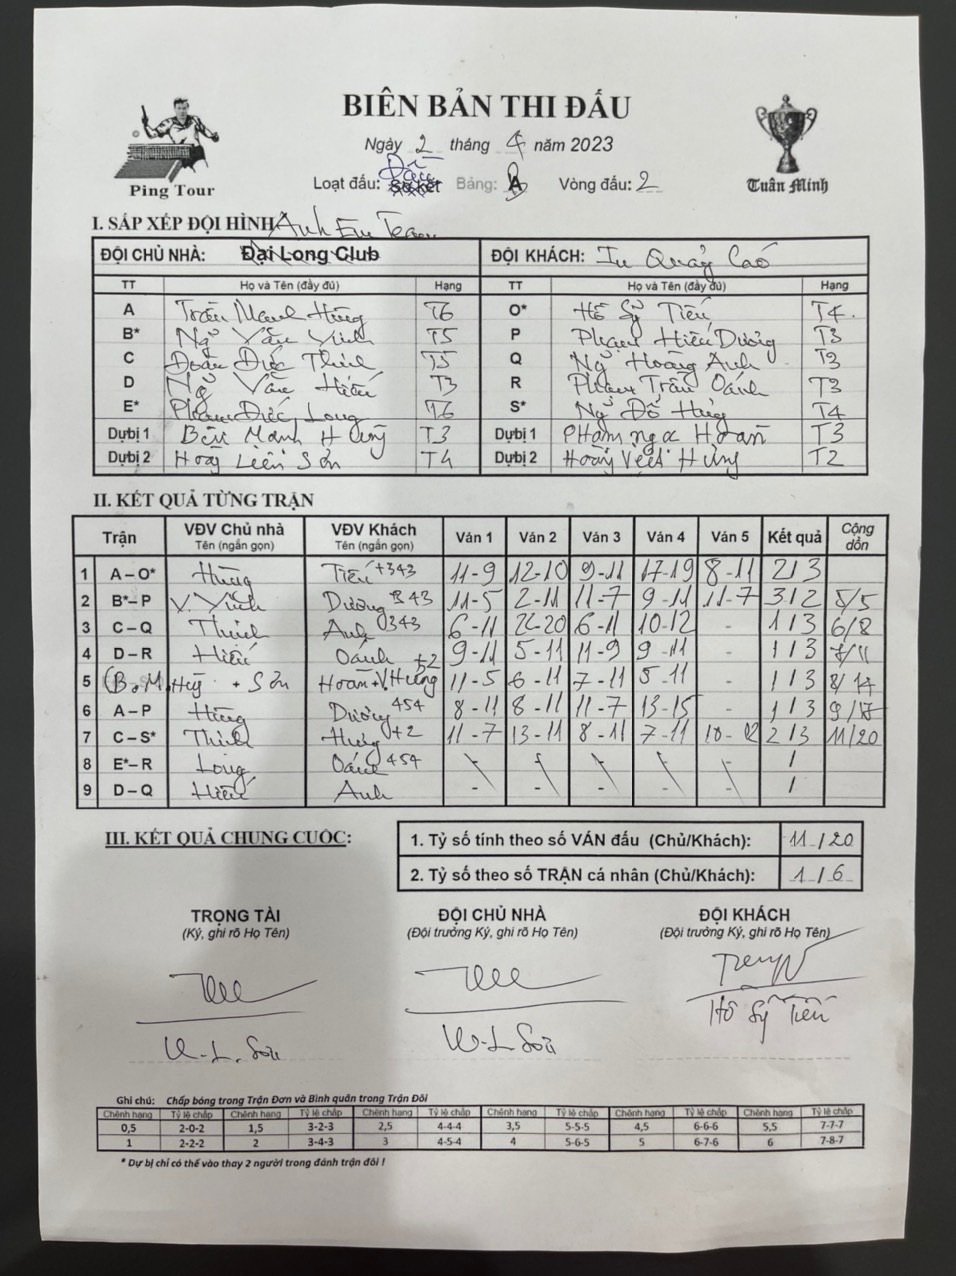 BIÊN BẢN THI ĐẤU
Ngày 2 tháng 4 năm 2023
Ping Tour
Loạt đấu: Bảng: A Vòng đấu: 2
Tuấn Minh
I. SẮP XẾP ĐỘI HÌNH Anh Em Team
ĐỘI CHỦ NHÀ: Đại Long Club ĐỘI KHÁCH: In Quảng Cáo
TT Họ và Tên (đầy đủ) Hạng TT Họ và Tên (đầy đủ) Hạng
A Trần Mạnh Hùng T6 O* Hồ Sỹ Tiến T4
B* Ng Văn Vinh T5 P Phạm Hiếu Dương T3
C Đoàn Đức Thịnh T5 Q Ng Hoàng Anh T3
D Ng Văn Hiếu T3 R Phạm Trần Oánh T3
E* Phạm Đức Long T6 S* Ng Đỗ Hưng T4
Dự bị 1 Bùi Mạnh Hùng T3 Dự bị 1 PHạm ngọc Hoàn T3
Dự bị 2 Hoàng Liên Sơn T4 Dự bị 2 Hoàng Việt Hưng T2
II. KẾT QUẢ TỪNG TRẬN
Trận VĐV Chủ nhà VĐV Khách Ván 1 Ván 2 Ván 3 Ván 4 Ván 5 Kết quả Cộng dồn
Tên (ngắn gọn) Tên (ngắn gọn)
1 A – O* Hùng Tiến +343 11-9 12-10 9-11 17-19 8-11 2/3
2 B* – P V. Vinh Dương 343 11-5 2-11 11-7 9-11 11-7 3/2 5/5
3 C – Q Thịnh Anh 343 6-11 22-20 6-11 10-12 - 1/3 6/8
4 D – R Hiếu Oánh 9-11 5-11 11-9 9-11 - 1/3 7/11
5 (B.M. Hùng + Sơn Hoàn + V.Hưng +2 11-5 6-11 7-11 5-11 - 1/3 8/14
6 A – P Hùng Dương 454 8-11 8-11 11-7 13-15 - 1/3 9/17
7 C – S* Thịnh Hưng +2 11-7 13-11 8-11 7-11 10-12 2/3 11/20
8 E* – R Long Oánh 454 - - - - - /
9 D – Q Hiếu Anh - - - - - /
III. KẾT QUẢ CHUNG CUỘC:
1. Tỷ số tính theo số VÁN đấu (Chủ/Khách): 11/20
2. Tỷ số theo số TRẬN cá nhân (Chủ/Khách): 1/6
TRỌNG TÀI ĐỘI CHỦ NHÀ ĐỘI KHÁCH
(Ký, ghi rõ Họ Tên) (Đội trưởng Ký, ghi rõ Họ Tên) (Đội trưởng Ký, ghi rõ Họ Tên)
Hồ Sỹ Tiến
Ghi chú: Chấp bóng trong Trận Đơn và Bình quân trong Trận Đôi
Chênh hạng Tỷ lệ chấp Chênh hạng Tỷ lệ chấp Chênh hạng Tỷ lệ chấp Chênh hạng Tỷ lệ chấp Chênh hạng Tỷ lệ chấp Chênh hạng Tỷ lệ chấp
0,5 2-0-2 1,5 3-2-3 2,5 4-4-4 3,5 5-5-5 4,5 6-6-6 5,5 7-7-7
1 2-2-2 2 3-4-3 3 4-5-4 4 5-6-5 5 6-7-6 6 7-8-7
* Dự bị chỉ có thể vào thay 2 người trong đánh trận đôi !